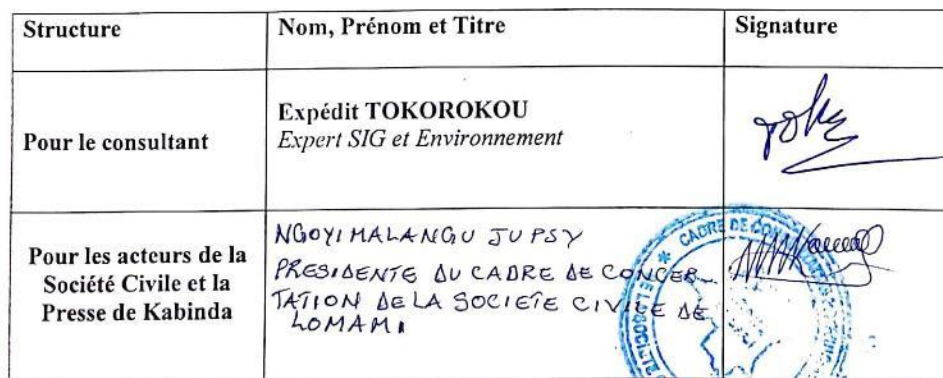 Structure
Nom, Prénom et Titre
Signature
Pour le consultant
Expédit TOKOROKOU
Expert SIG et Environnement
Pour les acteurs de la
Société Civile et la
Presse de Kabinda
NGOYI MALANGU JUPSY
PRESIDENTE DU CADRE DE CONCER-
TATION DE LA SOCIETE CIVILE DE
LOMAMI
CADRE DE